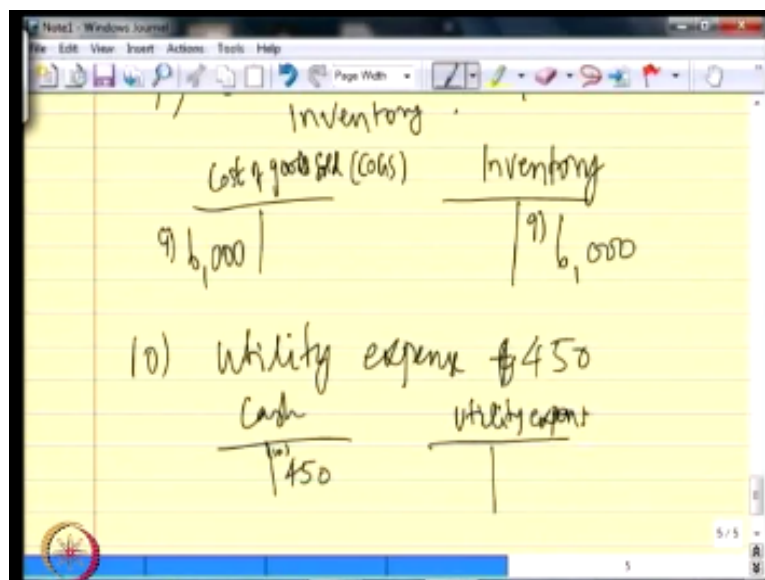 Note1 - Windows Journal
File Edit View Insert Actions Tools Help
Page Width
Inventory.
Cost of goods sold (COGS) Inventory
9) 6,000 9) 6,000
10) Utility expense of 450
Cash Utility expense
(10) 450
5/5
5